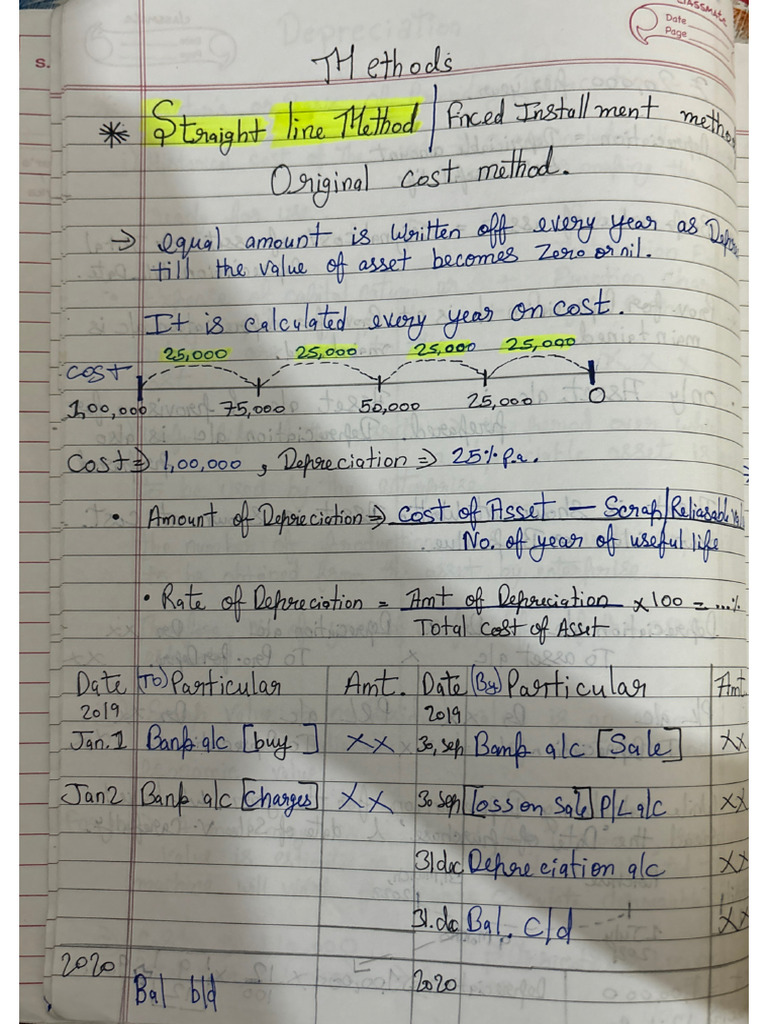 classmate
Date
Page
S.
Methods
* Straight line Method | Fixced Installment metho
Original cost method.
→ equal amount is written off every year as Depre
till the value of asset becomes Zero or nil.
It is calculated every year on cost.
25,000 25,000 25,000 25,000
Cost
1,00,000 75,000 50,000 25,000 0
Cost ⇒ 1,00,000 , Depreciation ⇒ 25% p.a.
• Amount of Depreciation ⇒ Cost of Asset — Scrap/Reliasable
No. of year of useful life
• Rate of Depreciation = Amt of Depreciation × 100 = ...%
Total Cost of Asset
Date (To) Particular Amt. Date (By) Particular Amt
2019 2019
Jan.1 Bank a/c [buy] XX 30, sep Bank a/c [Sale] XX
Jan 2 Bank a/c [Charges] XX 30 sep [loss on Sale] P/L a/c XX
31 dec Depreciation a/c XX
31. dec Bal. c/d XX
2020 2020
Bal b/d